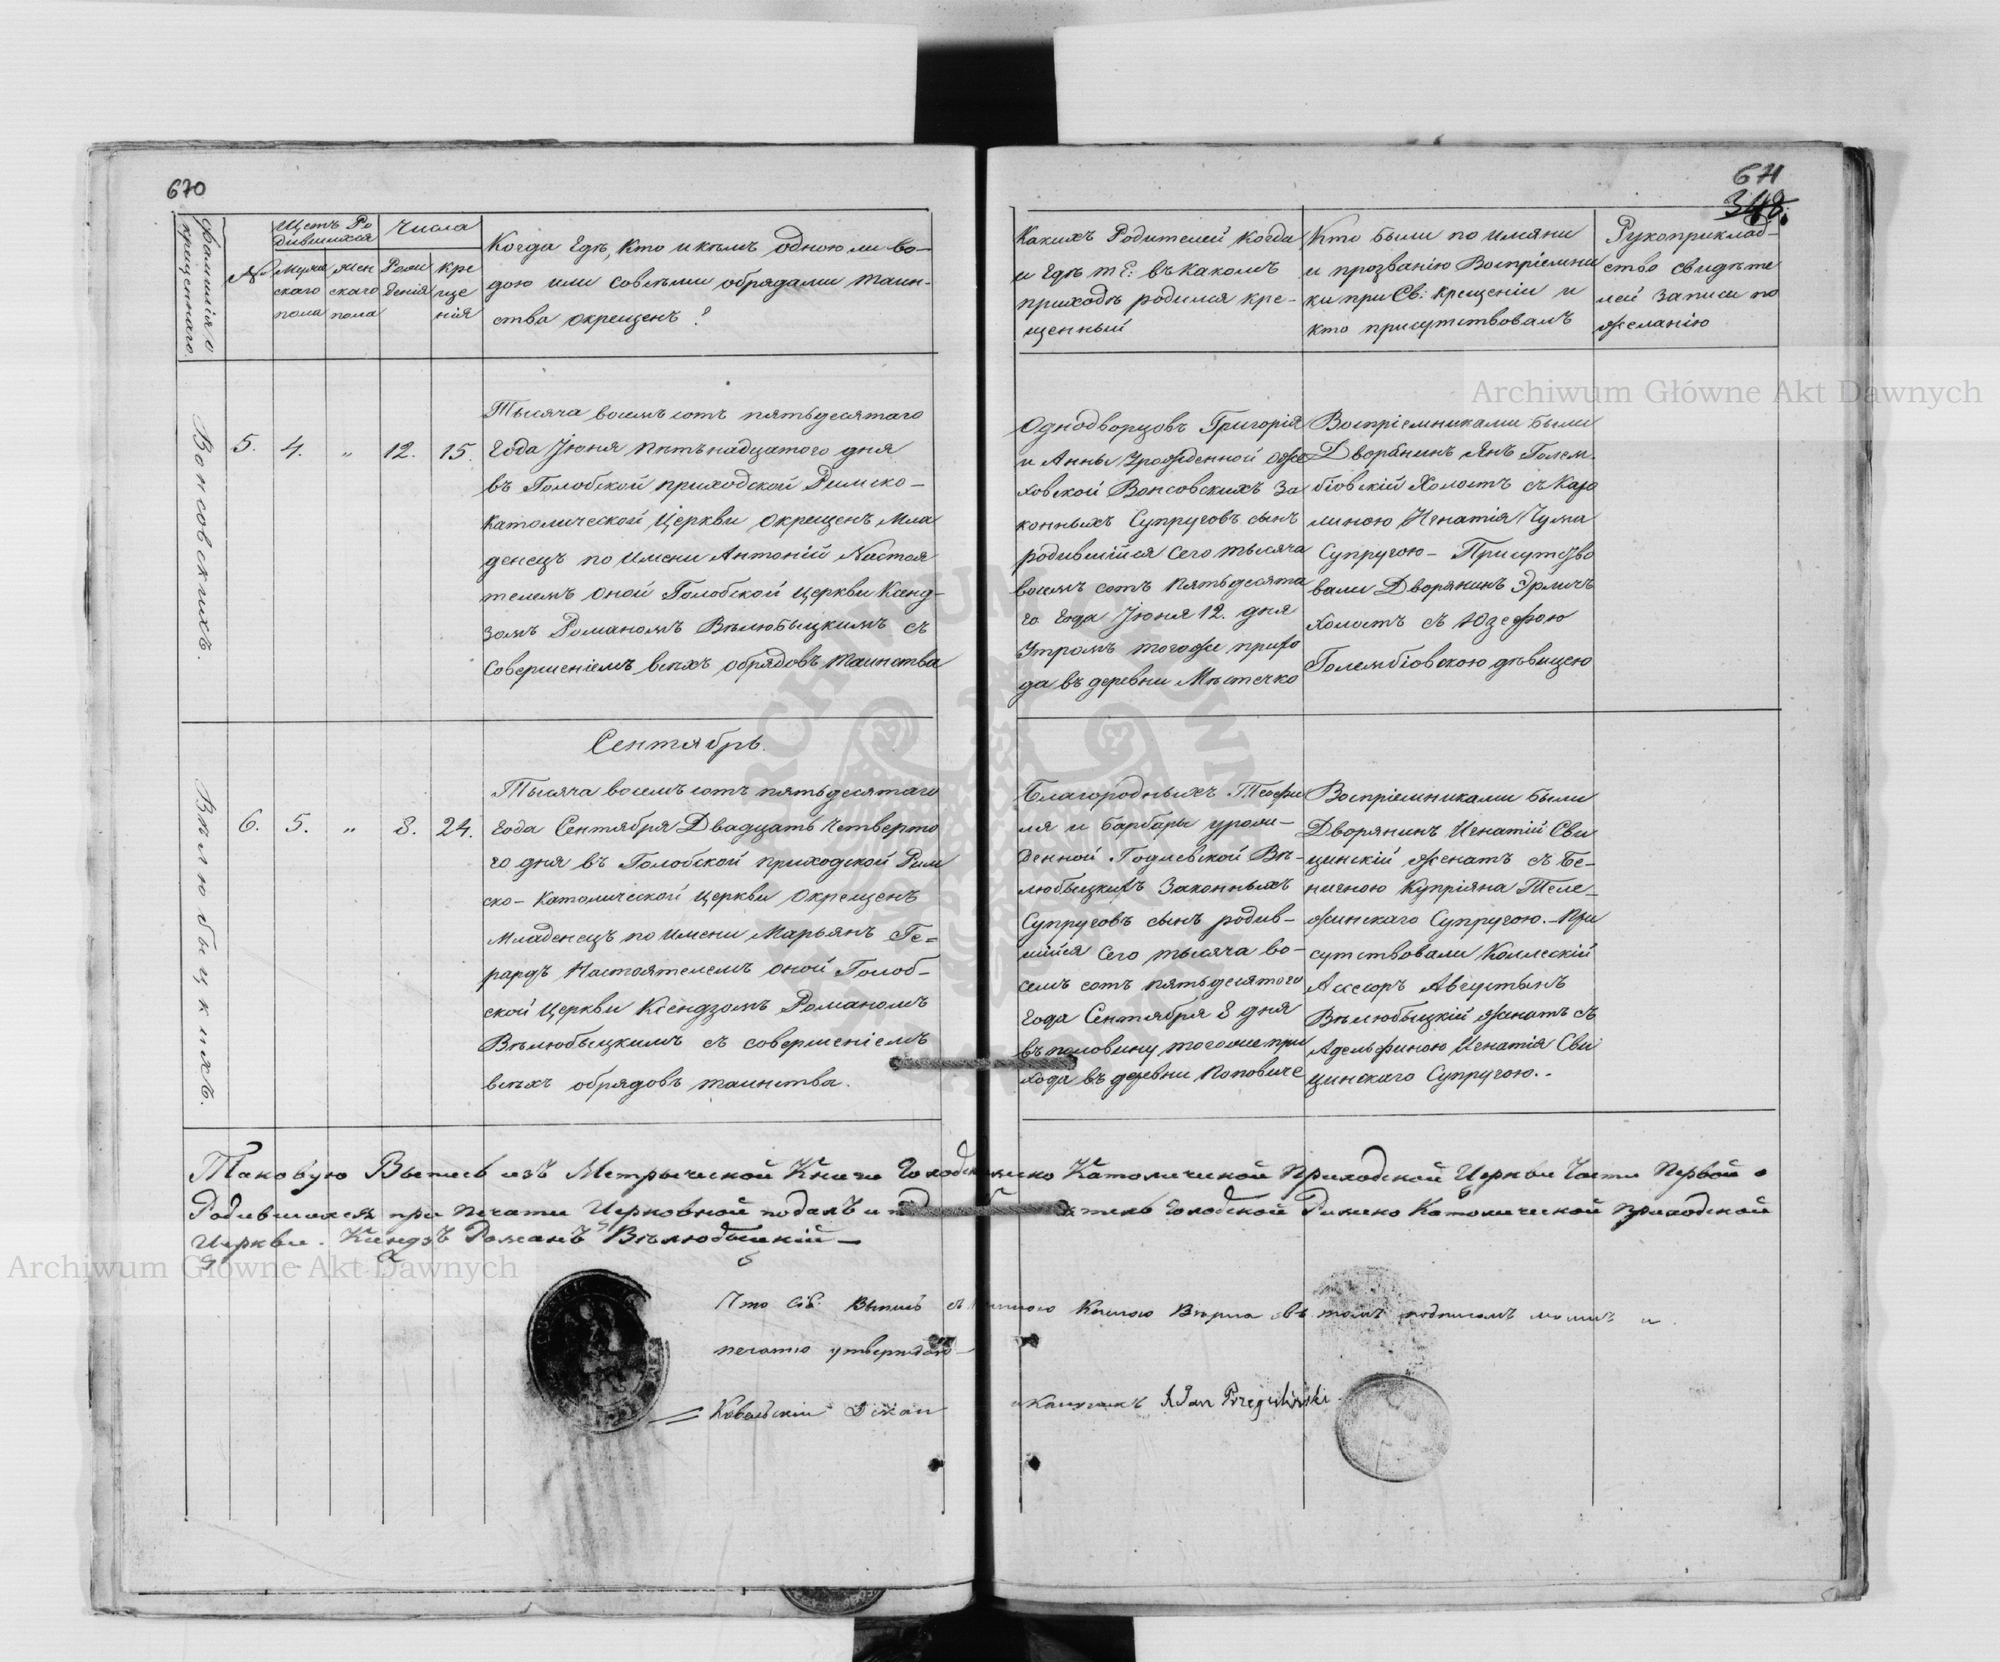 670
Фамилія о
крещеннаго.
№
Щетъ Ро
дившихся
Мужс
скаго
пола
Жен
скаго
пола
Числа
Рож
денія
Кре
ще
нія
Когда Гдѣ, Кто и кѣмъ одною ли во-
дою или совсѣми обрядами таин-
ства окрещенъ?
Вонсовскихъ.
5.
4.
"
12.
15.
Тысяча восемъ сотъ пятьдесятаго
Года Іюня пятьнадцатого дня
въ Голобской приходской Римско-
Католической Церкви окрещенъ Мла
денецъ по имени Антоній Настоя
телемъ оной Голобской церкви Ксенд-
зомъ Романомъ Вѣлюбыцкимъ съ
совершеніемъ всѣхъ обрядовъ таинства
Сентябрь.
Вѣлюбыцкихъ.
6.
5.
"
8.
24.
Тысяча восемъ сотъ пятьдесятаго
Года Сентября Двадцать четверто
го дня въ Голобской приходской Рим
ско-Католической церкви окрещенъ
Младенецъ по имени Марьянъ Ге=
рардъ Настоятелемъ оной Голоб-
ской церкви Ксендзомъ Романомъ
Вѣлюбыцкимъ съ совершеніемъ
всѣхъ обрядовъ таинства.
671
348.
Какихъ Родителей когда
и гдѣ т Е: въ какомъ
приходѣ родился кре-
щенный
Кто были по имяни
и прозванію Воспріемни
ки при Св: крещеніи и
кто присутствовалъ
Рукоприклад-
ство свидѣте
лей записи по
желанію
Однодворцовъ Григорія
и Анны Урожденной Оже
ховской Вонсовскихъ За
конныхъ Супруговъ сынъ
родившійся сего тысяча
восемъ сотъ пятьдесята
го года Іюня 12. дня
Утромъ тогоже прихо
да въ деревни Мѣстечко
Воспріемниками были
Дворянинъ Янъ Голем
біовскій Холостъ съ Каро
линою Игнатія Чума
Супругою- Присутство
вали Дворянинъ Эрмичъ
холостъ съ Юзефою
Голембіовскою дѣвицею
Благородныхъ Теофи
ля и Барбары урож-
денной Годлевской Вѣ-
любыцкихъ Законныхъ
Супруговъ сынъ родив-
шійся сего тысяча во-
семъ сотъ пятьдесятого
Года Сентября 8 дня
въ половину тогоже при
хода въ деревни Поповиче
Воспріемниками были
Дворянинъ Игнатій Сви
цинскій женатъ съ Бе-
нигною Купріяна Теле-
жинскаго Супругою.-При
сутствовали Коллескій
Асесоръ Августынъ
Вѣлюбыцкій женатъ съ
Адельфиною Игнатія Сви
цинскаго Супругою.-
Таковую Выпись изъ Метрыческой Книги Католической Приходской Церкви Части Первой о
Родившихся при печати Церковной подалъ и Голобской Римско Католической Приходской
Церкви. Ксендзъ Романъ Вѣлюбыцкій-
Что сія: Выпись съ Книгою Вѣрна въ томъ подписомъ моимъ и
печатью утверждаю-
Ковальскій Деканъ
Каноникъ X Jan
Archiwum Główne Akt Dawnych
Archiwum Główne Akt Dawnych